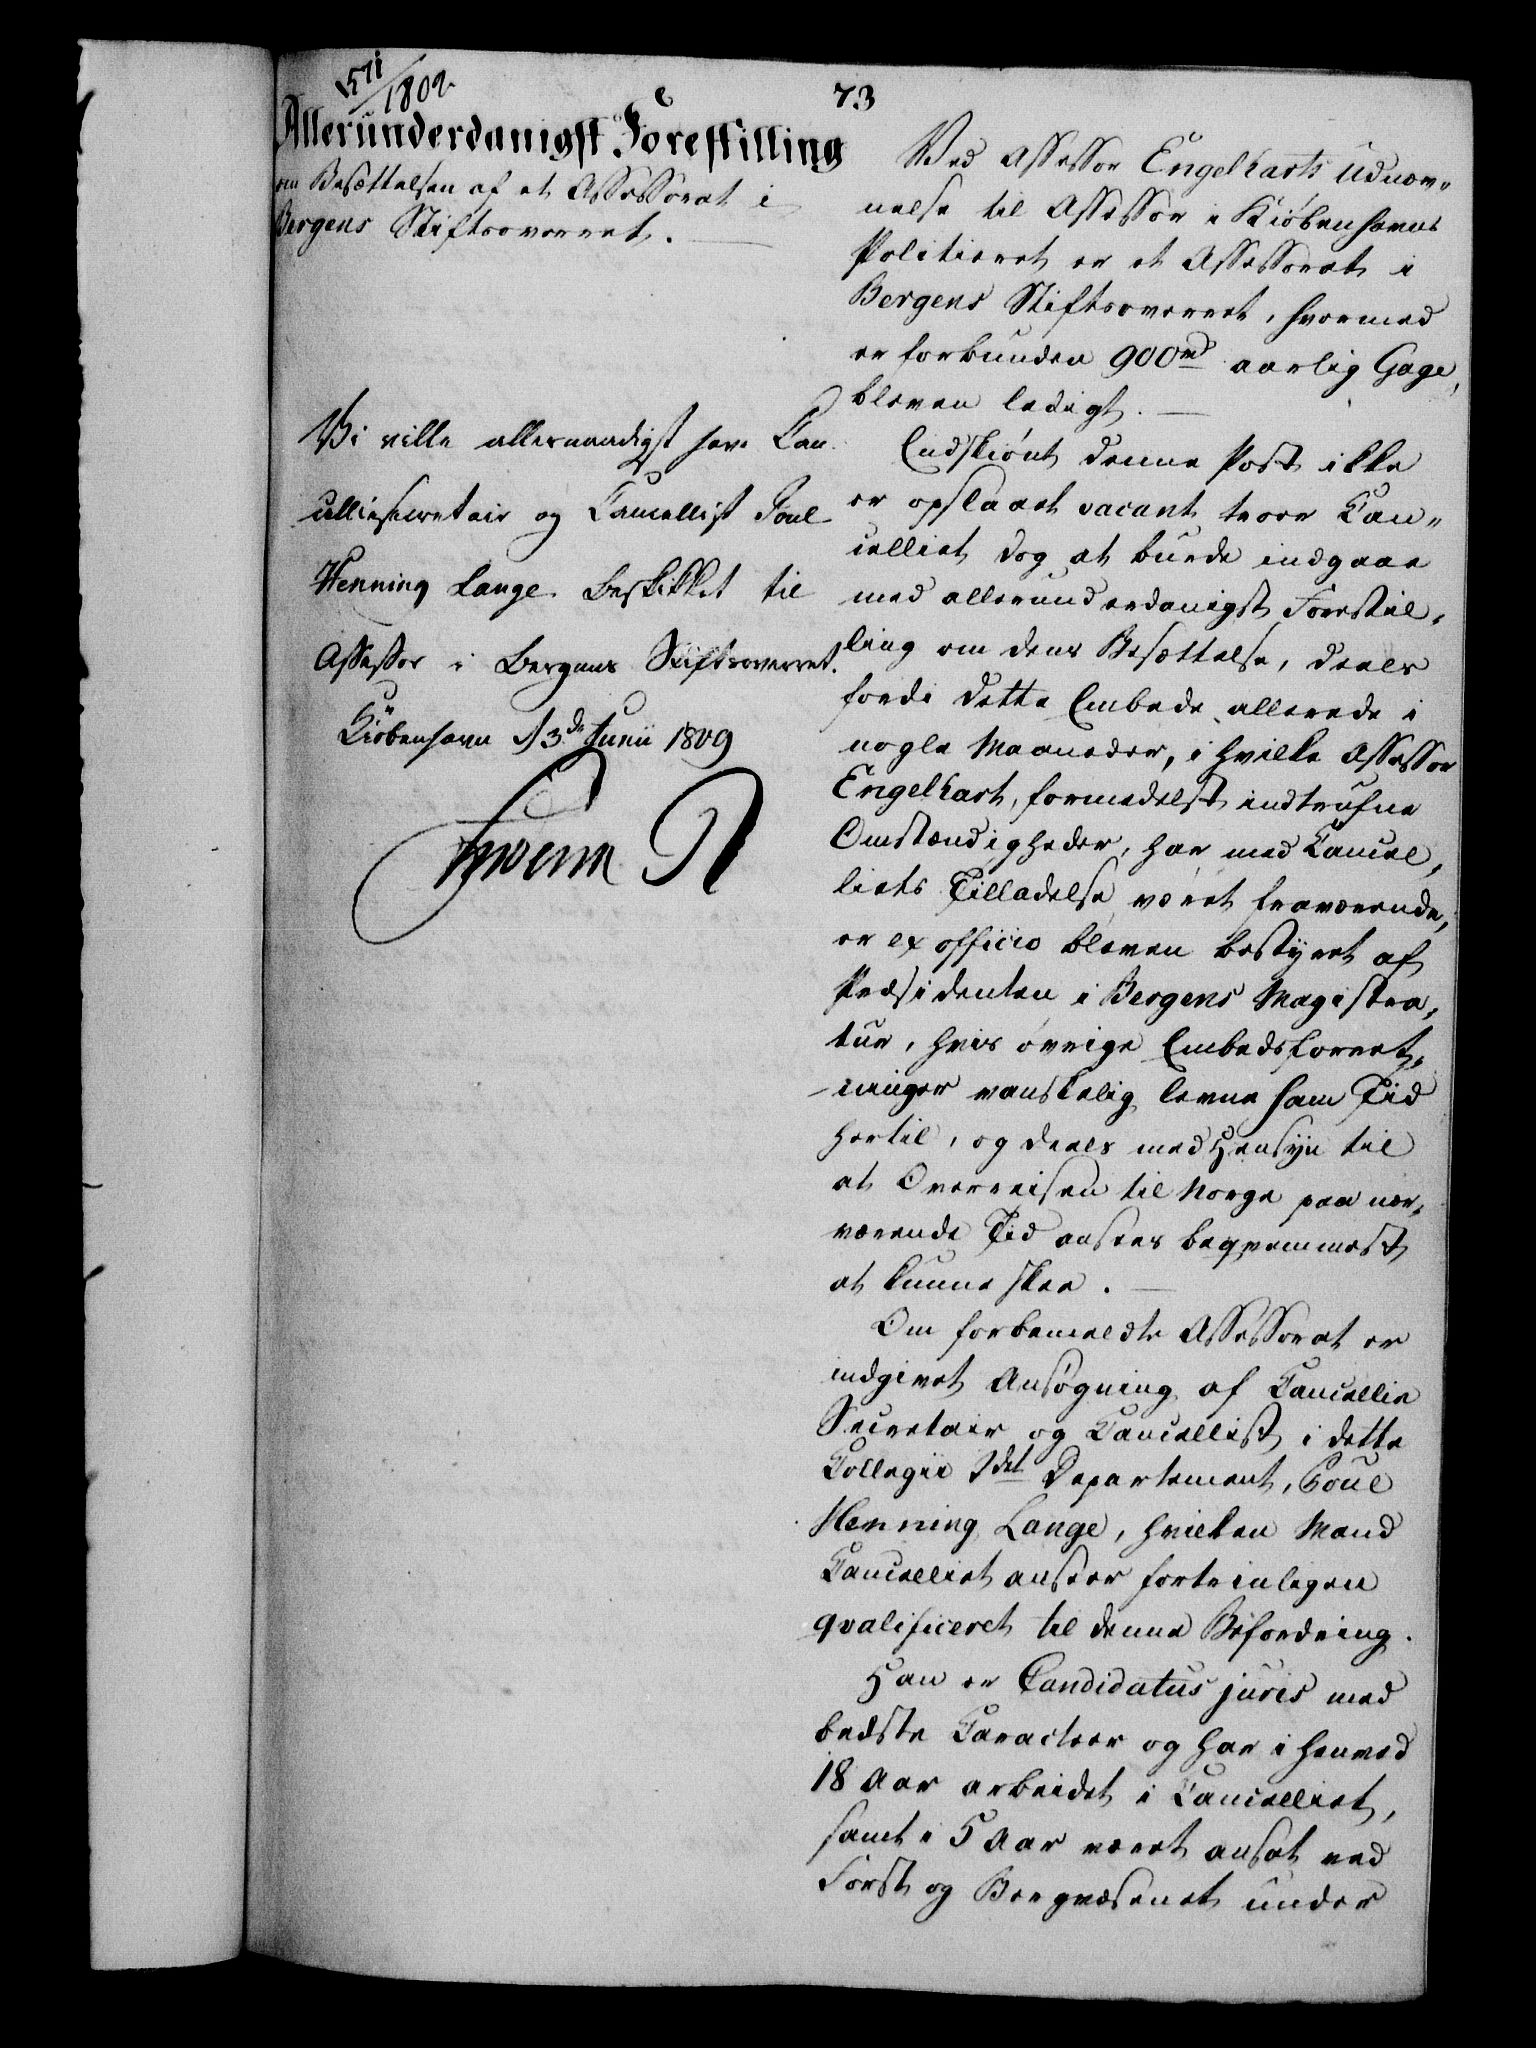 1571/1809.
73
Allerunderdanigst Forestilling
om Besættelsen af et Assessorat i
Bergens Stiftsoverret.
Vi ville allernaadigst have Can-
celliesecretair og Cancellist Poul
Henning Lange beskikket til
Assessor i Bergens Stiftsoverret.
Kiöbenhavn d 3de Junii 1809
Frederik R
Ved Assessor Engelharts Udnæv-
nelse til Assessor i Kiöbenhavns
Politieret er et Assessorat i
Bergens Stiftsoverret, hvormed
er forbunden 900rd aarlig Gage,
bleven ledigt.
Endskiönt denne Post ikke
er opslaaet vacant troer Can-
celliet dog at burde indgaae
med allerunderdanigst Forestil-
ling om dens Besættelse, deels
fordi dette Embede allerede i
nogle Maaneder, i hvilke Assessor
Engelhart, formedelst indtrufne
Omstændigheder, har med Cancel-
liets Tilladelse været fraværende,
er ex officio bleven bestyret af
Præsidenten i Bergens Magistra-
tur, hvis övrige Embedsforret-
ninger vanskelig levne ham Tid
hertil, og deels med Hensyn til
at Overreisen til Norge paa nær-
værende Tid ansees beqvemmest
at kunne skee.
Om forbemeldte Assessorat er
indgivet Ansögning af Cancellie
Secretair og Cancellist i dette
Collegii 2det Departement, Poul
Henning Lange, hvilken Mand
Cancelliet anseer fortrinligen
qvalificeret til denne Befordring.
Han er Candidatus juris med
bedste Caracteer og har i henved
18 Aar arbeidet i Cancelliet,
samt i 5 Aar været ansat ved
Forst og Bergvæsenet under